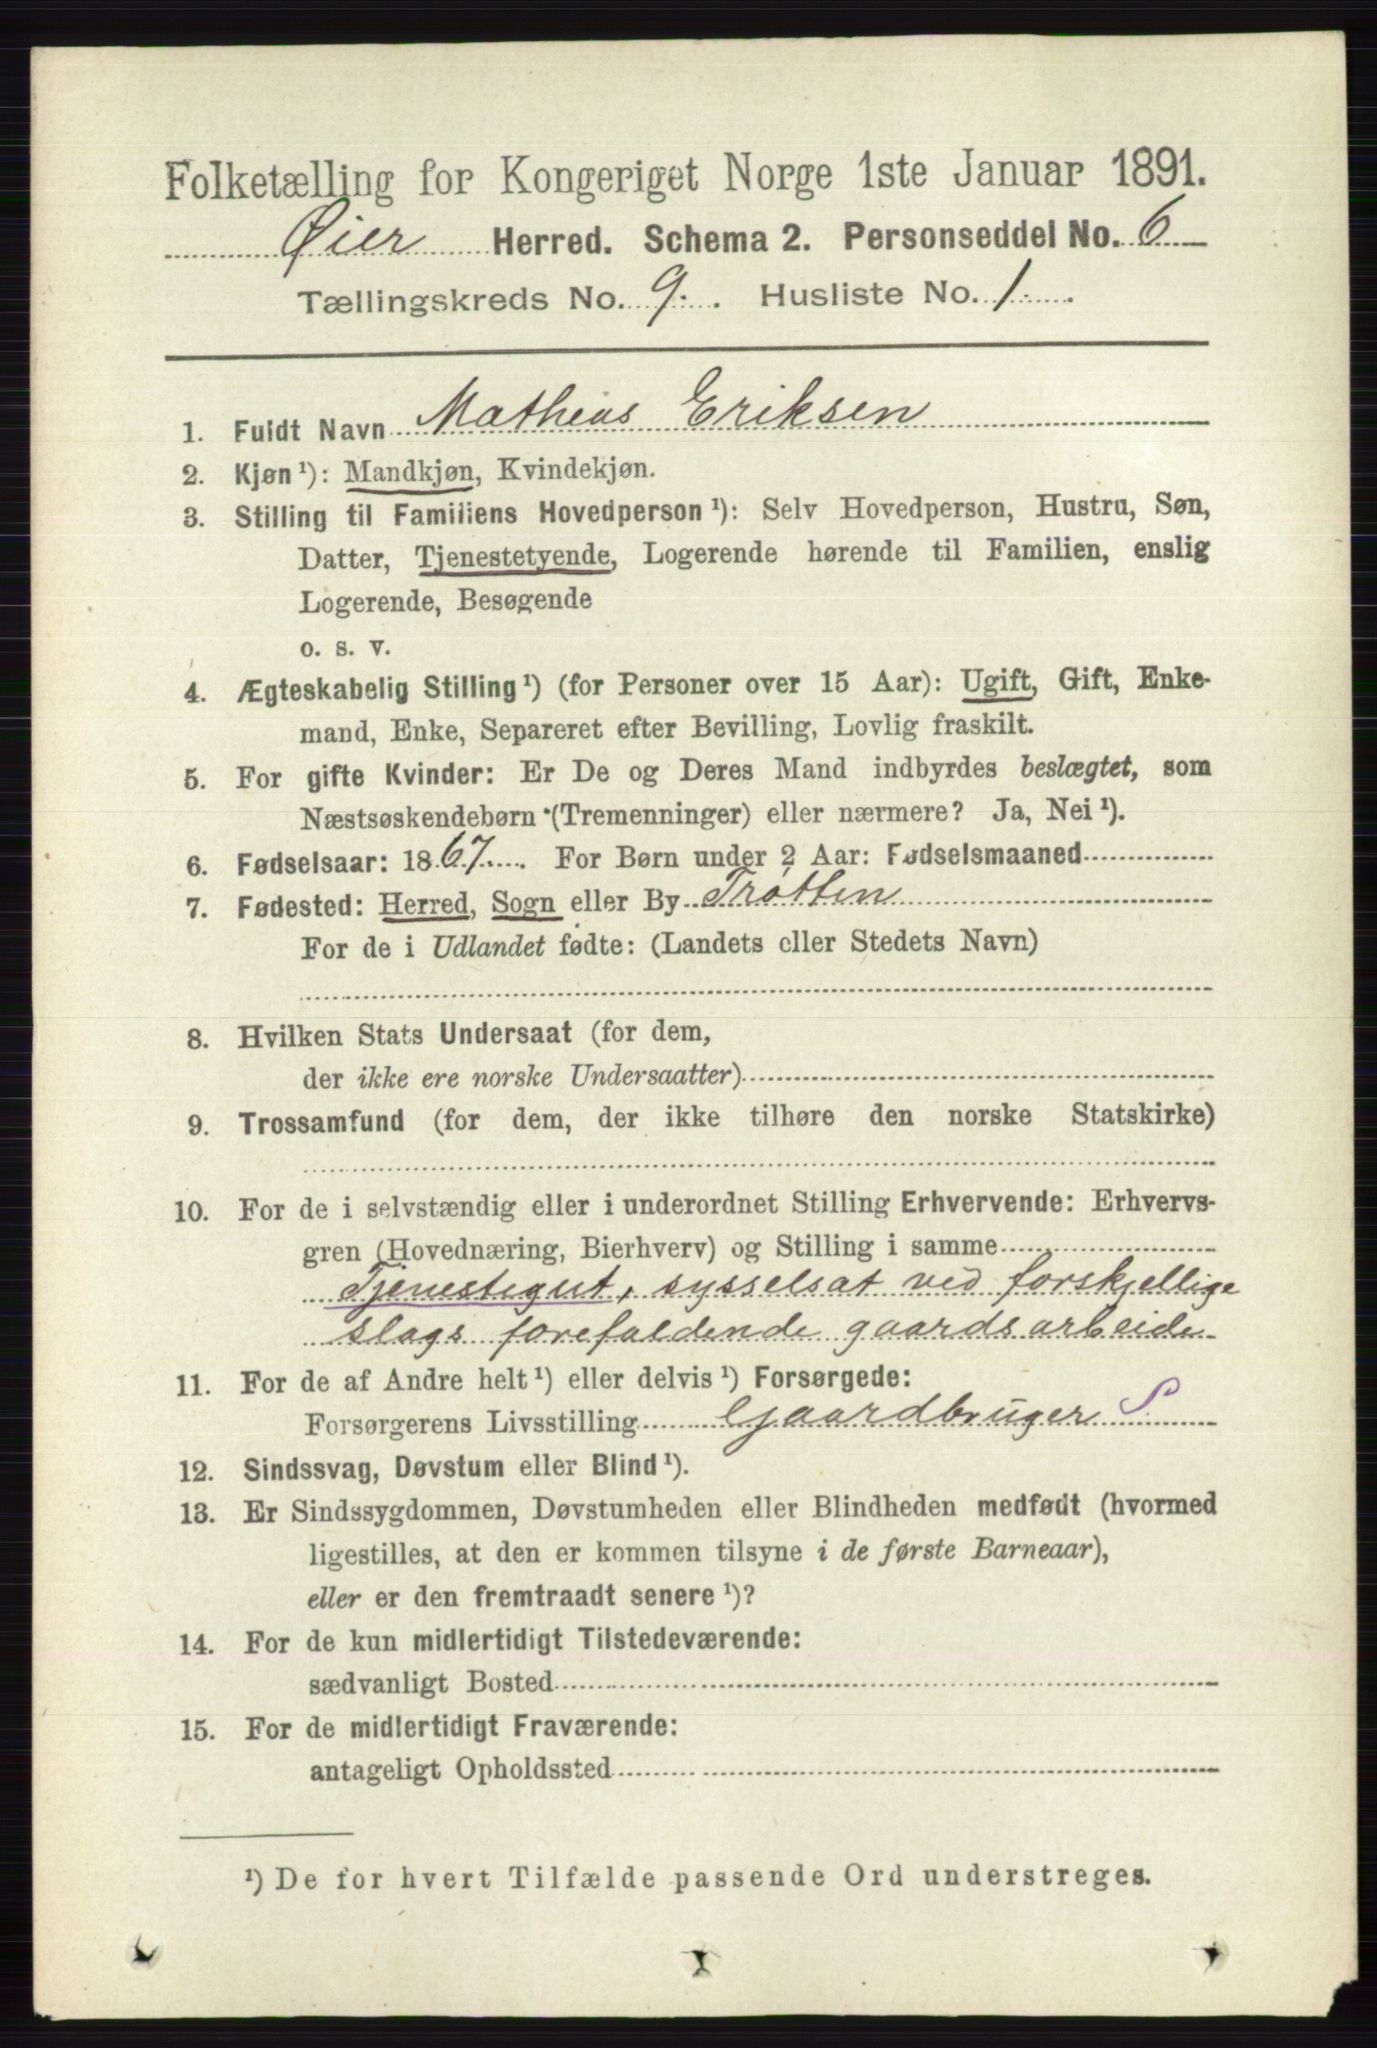 Folketælling for Kongeriget Norge 1ste Januar 1891.
Øier Herred. Schema 2. Personseddel No. 6
Tællingskreds No. 9. Husliste No. 1.
1. Fuldt Navn Matheus Eriksen
2. Kjøn ¹): Mandkjøn, Kvindekjøn.
3. Stilling til Familiens Hovedperson ¹): Selv Hovedperson, Hustru, Søn,
Datter, Tjenestetyende, Logerende hørende til Familien, enslig
Logerende, Besøgende
o. s. v.
4. Ægteskabelig Stilling ¹) (for Personer over 15 Aar): Ugift, Gift, Enke-
mand, Enke, Separeret efter Bevilling, Lovlig fraskilt.
5. For gifte Kvinder: Er De og Deres Mand indbyrdes beslægtet, som
Næstsøskendebørn (Tremenninger) eller nærmere? Ja, Nei ¹).
6. Fødselsaar: 1867. For Børn under 2 Aar: Fødselsmaaned
7. Fødested: Herred, Sogn eller By Trøtten
For de i Udlandet fødte: (Landets eller Stedets Navn)
8. Hvilken Stats Undersaat (for dem,
der ikke ere norske Undersaatter)
9. Trossamfund (for dem, der ikke tilhøre den norske Statskirke)
10. For de i selvstændig eller i underordnet Stilling Erhvervende: Erhvervs-
gren (Hovednæring, Bierhverv) og Stilling i samme
Tjenestegut, sysselsat ved forskjellige
slags forefaldende gaardsarbeide
11. For de af Andre helt ¹) eller delvis ¹) Forsørgede:
Forsørgerens Livsstilling Gjaardbruger S.
12. Sindssvag, Døvstum eller Blind ¹).
13. Er Sindssygdommen, Døvstumheden eller Blindheden medfødt (hvormed
ligestilles, at den er kommen tilsyne i de første Barneaar),
eller er den fremtraadt senere ¹)?
14. For de kun midlertidigt Tilstedeværende:
sædvanligt Bosted
15. For de midlertidigt Fraværende:
antageligt Opholdssted
¹) De for hvert Tilfælde passende Ord understreges.